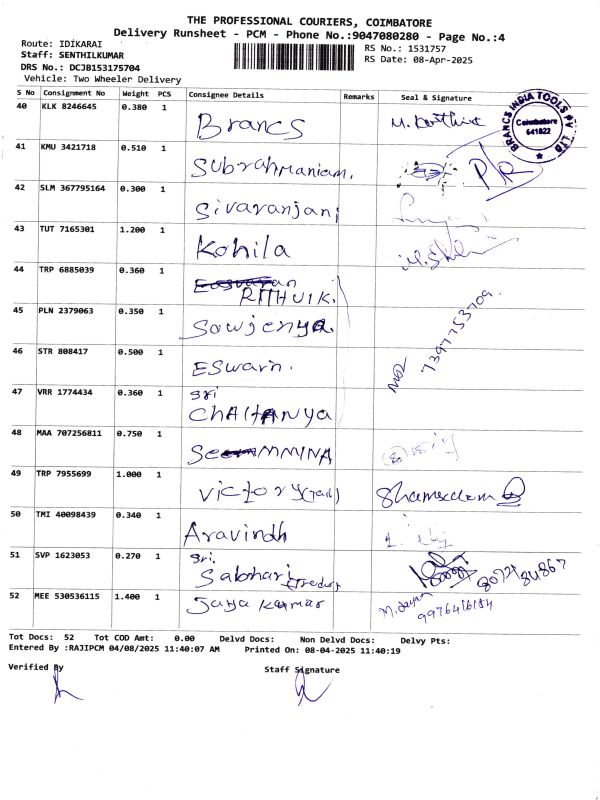 THE PROFESSIONAL COURIERS, COIMBATORE
Delivery Runsheet - PCM - Phone No.:9047080280 - Page No.:4
Route: IDIKARAI
RS No.: 1531757
Staff: SENTHILKUMAR
RS Date: 08-Apr-2025
DRS No.: DCJB153175704
Vehicle: Two Wheeler Delivery
S No Consignment No Weight PCS Consignee Details Remarks Seal & Signature
40 KLK 8246645 0.380 1 Brancs
BRANCS INDIA TOOLS PVT LTD
Coimbatore
641022
41 KMU 3421718 0.510 1 Subrahmaniam.
42 SLM 367795164 0.300 1 Sivaranjani
43 TUT 7165301 1.200 1 Kohila
44 TRP 6885039 0.360 1 RITHVIK.
45 PLN 2379063 0.350 1 Sowjenya.
7397753709
46 STR 808417 0.500 1 ESwarn.
47 VRR 1774434 0.360 1 Sri
CHAITANYA
48 MAA 707256811 0.750 1
49 TRP 7955699 1.000 1 Victory
50 TMI 40098439 0.340 1 Aravindh
51 SVP 1623053 0.270 1 Sri.
Sabhari
52 MEE 530536115 1.400 1 Jaya kumar
9976416184
Tot Docs: 52 Tot COD Amt: 0.00 Delvd Docs: Non Delvd Docs: Delvy Pts:
Entered By :RAJIPCM 04/08/2025 11:40:07 AM Printed On: 08-04-2025 11:40:19
Verified By Staff Signature